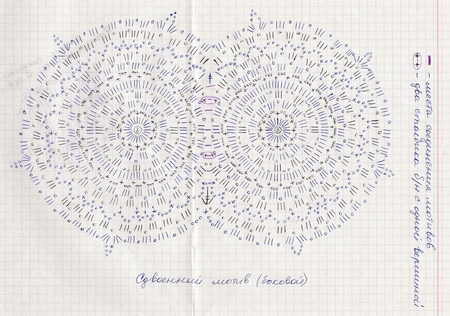 Сдвоенный мотив (боковой)
- места соединения мотивов
- два столбика б/н с одной вершиной